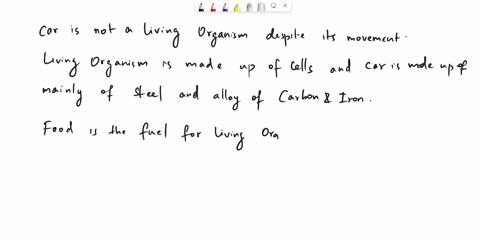 Car is not a Living Organism despite its movement.
Living Organism is made up of Cells and Car is made up of
mainly of Steel and alloy of Carbon & Iron.
Food is the fuel for Living Ora